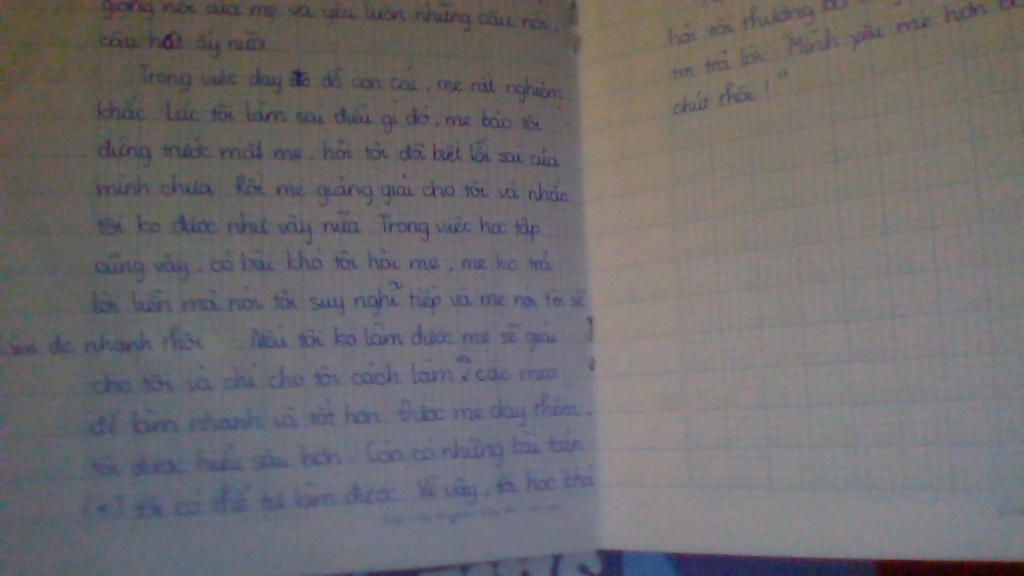 giọng nói của mẹ và yêu luôn những câu nói,
câu hát ấy nữa
Trong việc dạy dỗ con cái, mẹ rất nghiêm
khắc. Lúc tôi làm sai điều gì đó, mẹ bảo tôi
đứng trước mặt mẹ, hỏi tôi đã biết lỗi sai của
mình chưa. Rồi mẹ giảng giải cho tôi và nhắc
tôi ko được như vậy nữa. Trong việc học tập
cũng vậy, có bài khó tôi hỏi mẹ, mẹ ko trả
lời luôn mà nói tôi suy nghĩ tiếp và mẹ nói tôi sẽ
đc nhanh thôi. Nếu tôi ko làm được mẹ sẽ giải
cho tôi và chỉ cho tôi cách làm, các mẹo
để làm nhanh và tốt hơn. Được mẹ dạy thêm,
tôi được hiểu sâu hơn. Còn có những bài
tôi có thể tự làm được. Vì vậy, tôi học khá
hỏi tôi thương
tin trả lời. Mình yêu mẹ hơn
chút thôi!"